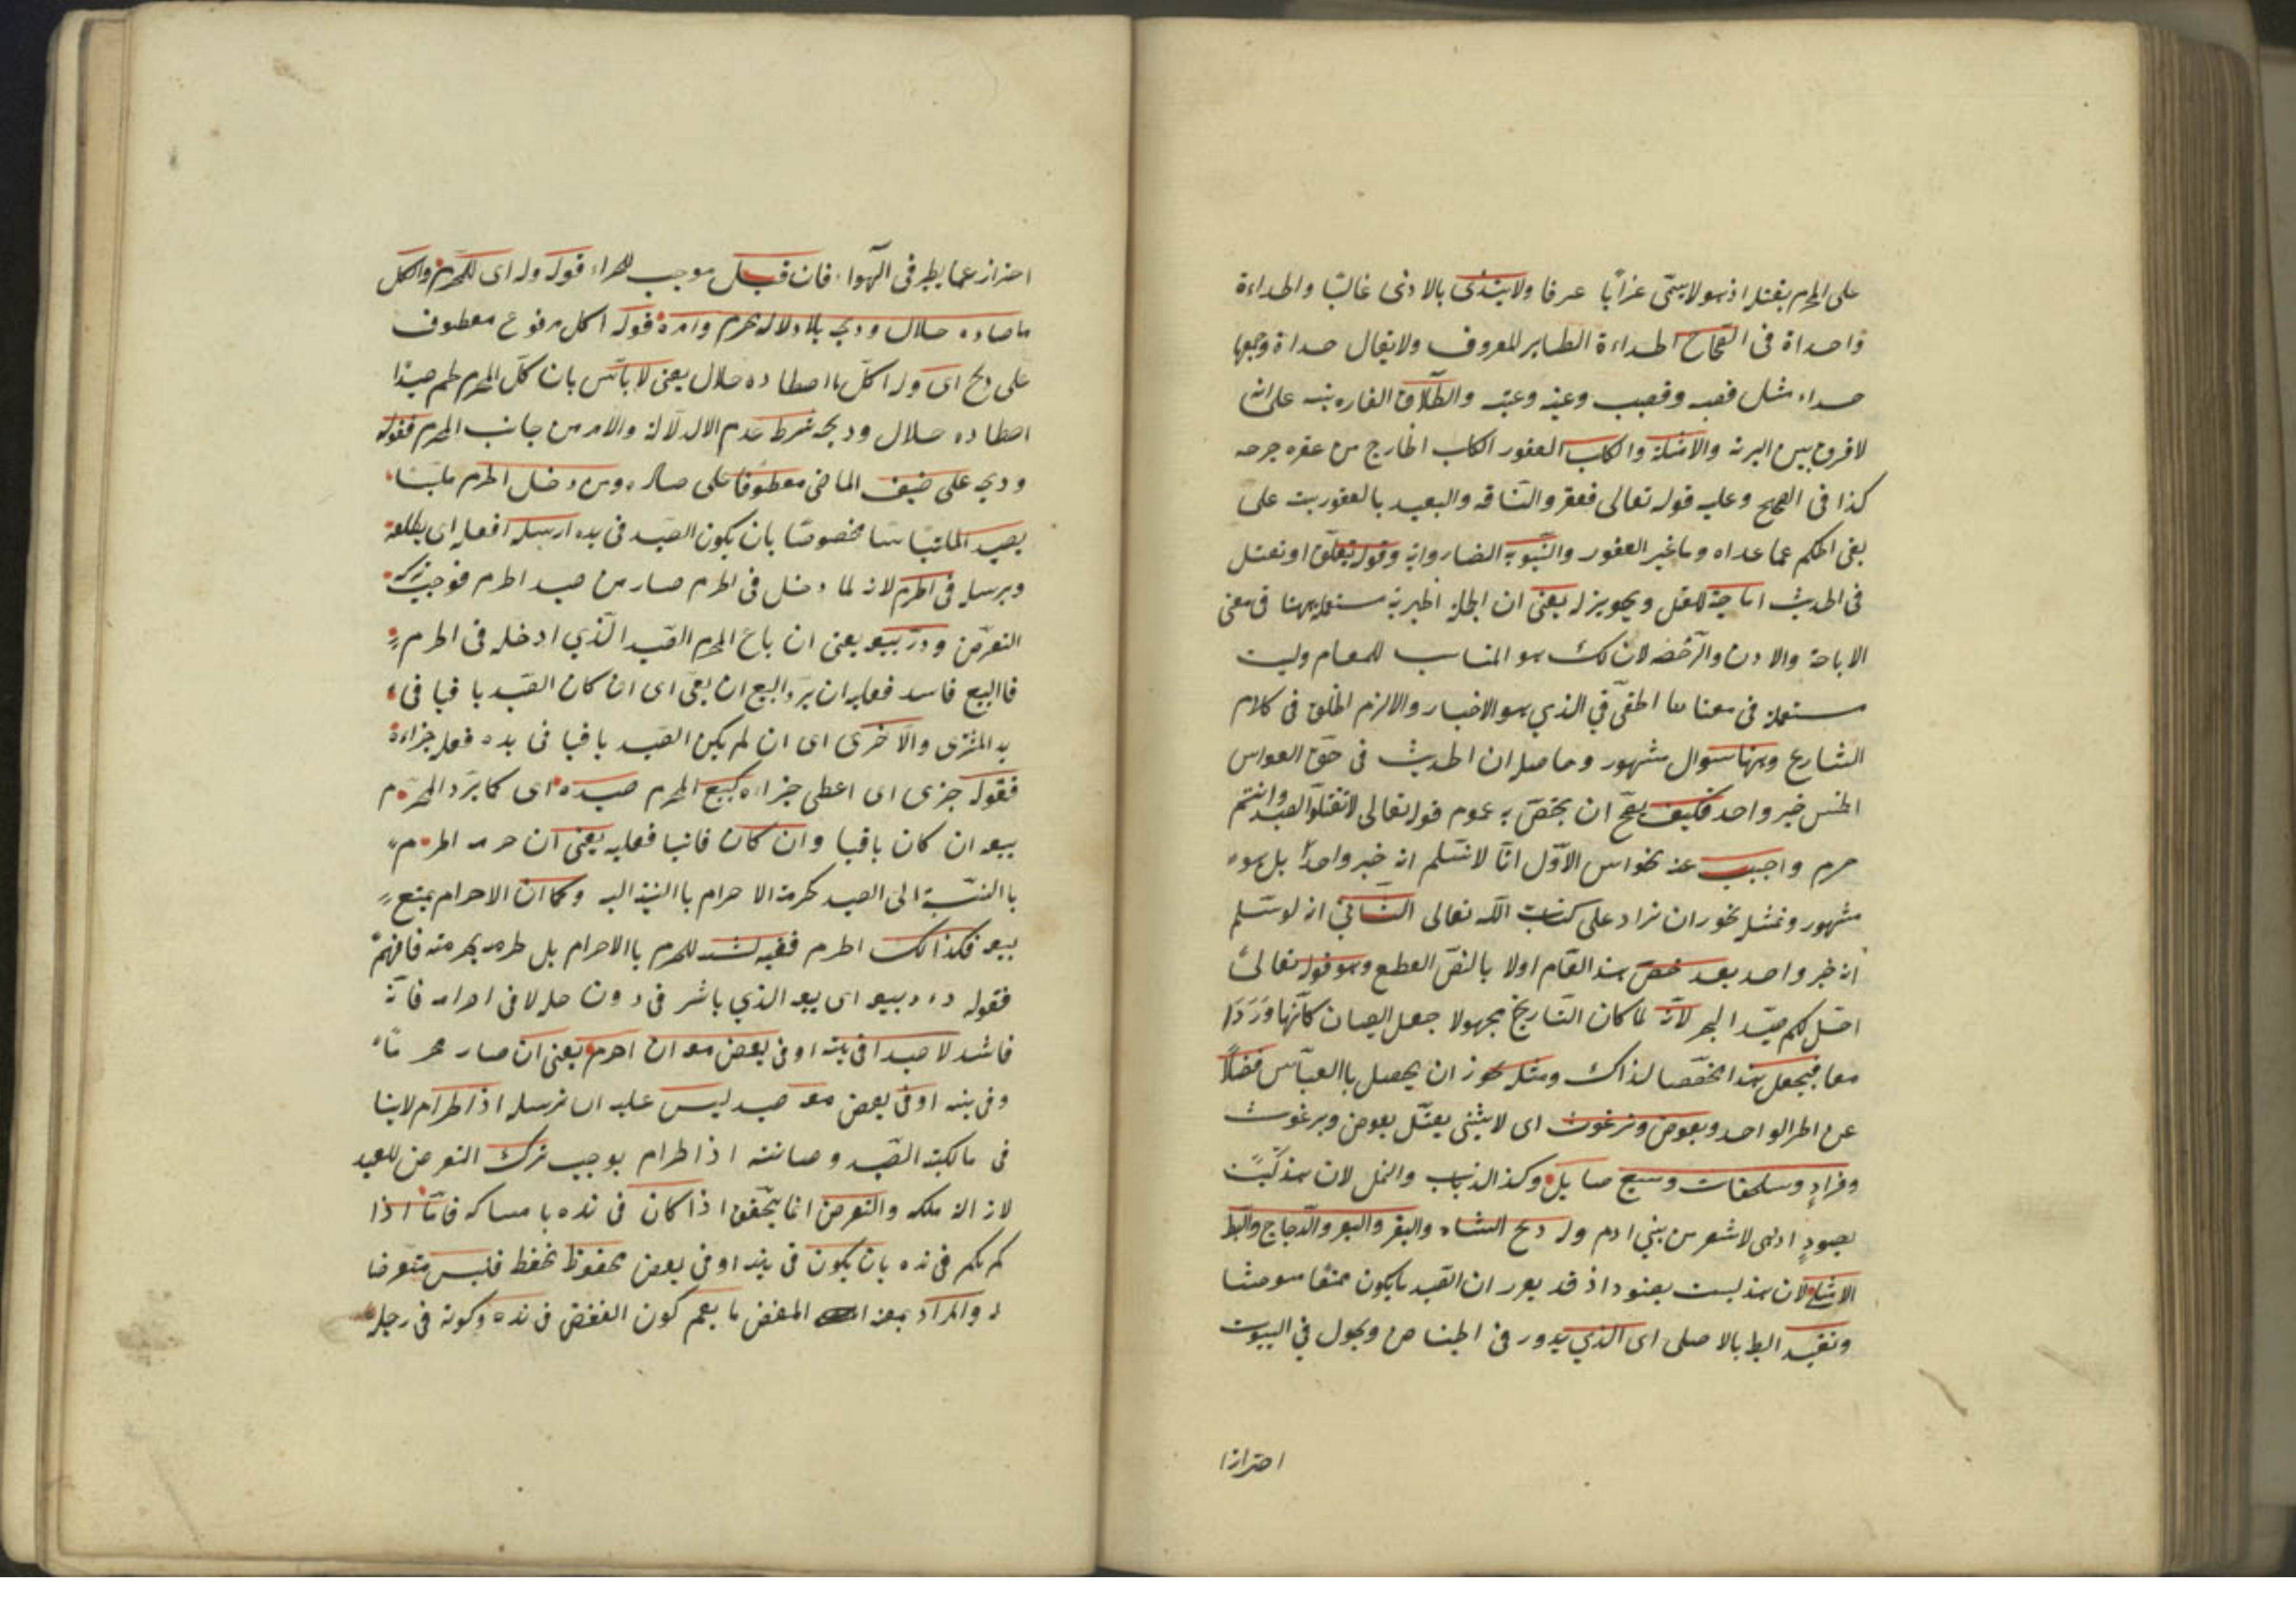 على المحرم بقتله اذ هو لا يسمى غرابا عرفا ولا يبتدئ بالاذى غالبا والحداءة
واحداة فى الصحاح الحداءة الطاير المعروف ولا يقال حداة وجمعها
حداء مثل قصبه وقصب وعنبه وعنب والطلاق الفاره ينبه على انه
لا فرق بين البرية والاهلية والكلب العقور الكلب الجارح من عقره جرحه
كذا فى الصحيح وعليه قوله تعالى فعقروا الناقه والبعيد بالعقور يبت على
نفى الحكم عما عداه وما غير العقور والتسوية الضارواية وقوله تعلق او نقتل
فى الحديث اباحية للقتل ويجويز له يعنى ان الجملة الخبرية مستعملة ههنا فى معنى
الاباحة والاذن والرخصة لان ذلك هو المناسب للمقام وليست
مستعملة فى معناها الحقيقي الذي هو الاخبار والا لزم الخلف فى كلام
الشارع وههنا سوال مشهور وحاصله ان الحديث فى حق الفواسق
الخمس خبر واحد فكيف يصح ان يخص به عموم قوله تعالى لا تقتلوا الصيد وانتم
حرم واجيب عنه بجوابين الاول انا لا نسلم انه خبر واحد بل هو
مشهور وبمثله يجوز ان يزاد على كتاب الله تعالى الثاني انه لو سلم
انه خبر واحد بعد خص هذا العام اولا بالنص القطع وهو قوله تعالى
احل لكم صيد البحر لانه لما كان التاريخ مجهولا جعل النصان كانهما وردا
معا فيجعل هذا مخصصا لذاك ومثله يجوز ان يحصل باالقياس فضلا
عن الخبر الواحد وبعوض وبرغوث اى لا شئ بقتل بعوض وبرغوث
وقراد وسلحفات وسبع صايل وكذا الذباب والنمل لان هذه ليست
بصيود اذ هى لا شعر من بني ادم وله ذبح الشاة والبقر والبعير والدجاج والبط
الاهلى لان هذه ليست بصيود اذ قد يعرر ان الصيد ما يكون ممتنعا متوحشا
وتقييد البط بالاصلى اى الذي يدور فى الحياض ويجول في البيوت
احترازا
احتراز عما يطير فى الهواء فان قتله موجب للجزاء قوله وله اى للمحرم واكل
ما صاده حلال وذبحه بلا دلاله محرم وامره قوله اكل مرفوع معطوف
على ذبح اى وله اكل ما اصطاده حلال يعنى لا باس بان كل المحرم لحم صيدا
اصطاده حلال وذبحه بشرط عدم الالدلالة والامر من جانب المحرم فقوله
وذبحه على ضيف الماضى معطوفا على صاده ومن دخل الحرم ملبسا
بصيد الملتبسا مخصوصا بان يكون الصيد فى يده ارسله افعليه اى يطلقه
ويرسله فى الحرم لانه لما دخل فى الحرم صار من صيد الحرم فوجب ترك
التعرض ورد بيعه يعنى ان باع المحرم الصيد الذي ادخله فى الحرم
فاالبيع فاسد فعليه ان يرد البيع ان بقى اى ان كان الصيد باقيا فى
يد المشترى والا خرى اى ان لم يكن الصيد باقيا فى يده فعليه جزاءه
فقوله جزى اى اعطى جزاءه كبيع المحرم صيده اى كما يرد المحرم
بيعه ان كان باقيا وان كان فانيا فعليه يعنى ان حرمه الحرم
باالنسبة الى الصيد كحرمة الاحرام باالنسبة اليه وكما ان الاحرام يمنع
بيعه فكذالك الحرم ففيه للمحرم باالاحرام بل لحرمه بحرمته فافهم
فقوله ورد بيعه اى بيعه الذي باشر فى دون حله لا فى احرامه فانه
فاسد لا صيدا فى بيته او فى بعض معه ان احرم يعنى ان صار محرما
وفى بيته او فى بعض معه صيد ليس عليه ان يرسله اذ الحرام لاينا
فى مالكية الصيد وصانته اذ الحرام يوجب ترك التعرض للصيد
لازالة ملكه والتعرض انما يتحقق اذا كان فى يده بامساكه فاما اذا
لم يكن فى يده بان يكون فى بيته او فى بعض محفوظ بحفظ فليس متعرضا
له والمراد بمعه القفص ما يعم كون القفص فى يده وكونه فى رجله